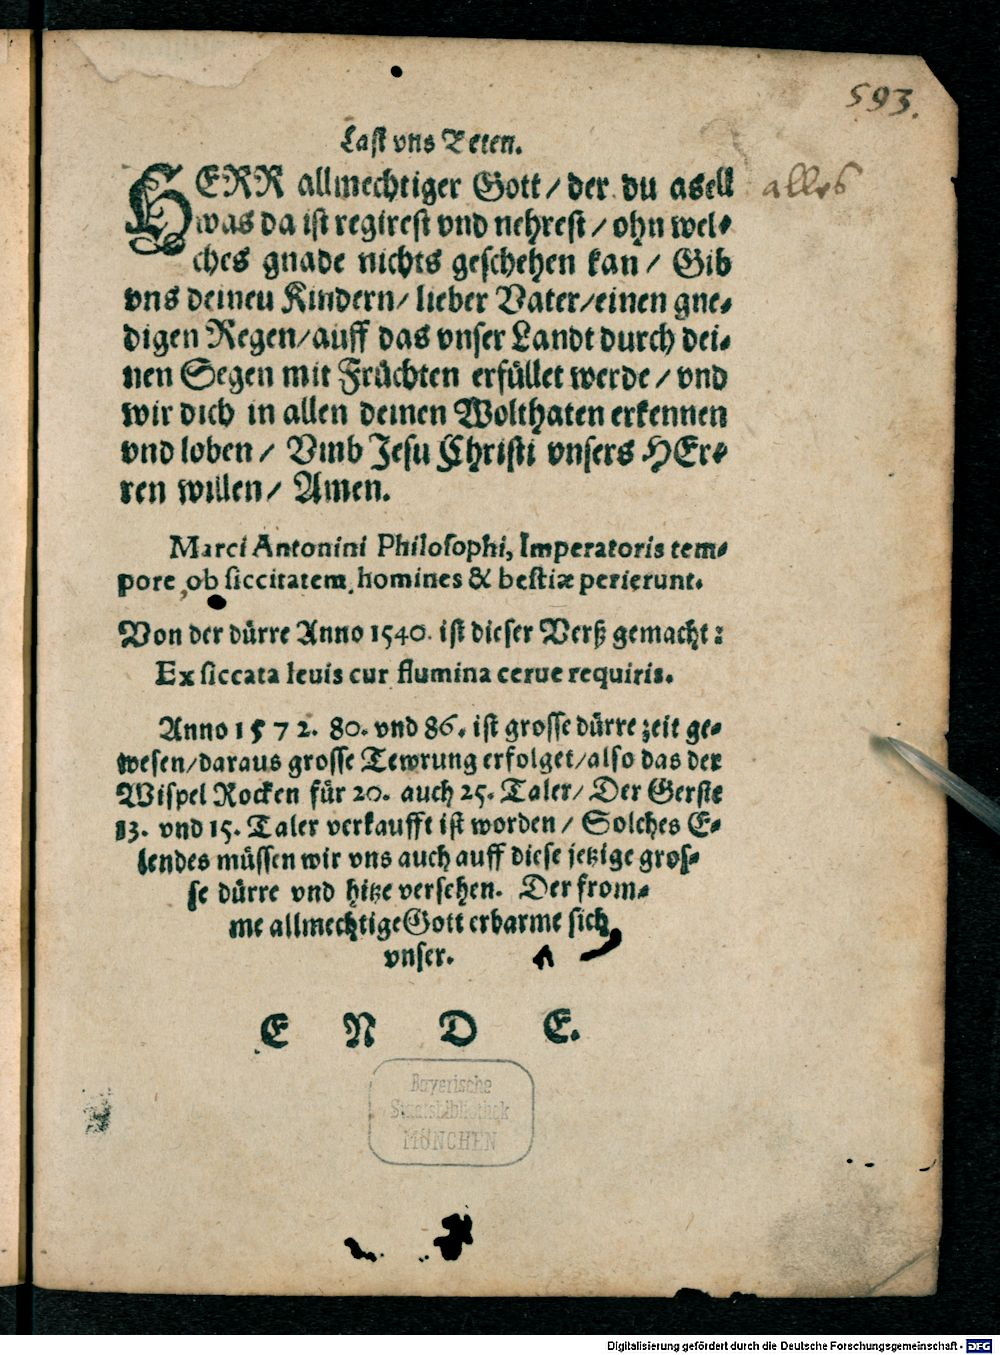 593.
Last vns Beten.
HERR allmechtiger Gott / der du asell alles
was da ist regirest vnd nehrest / ohn wel-
ches gnade nichts geschehen kan / Gib
vns deinen Kindern / lieber Vater / einen gne-
digen Regen / auff das vnser Landt durch dei-
nen Segen mit Früchten erfüllet werde / vnd
wir dich in allen deinen Wolthaten erkennen
vnd loben / Vmb Jesu Christi vnsers HEr-
ren willen / Amen.
Marci Antonini Philosophi, Imperatoris tem-
pore, ob siccitatem, homines & bestiæ perierunt.
Von der dürre Anno 1540. ist dieser Verß gemacht:
Ex siccata leuis cur flumina cerue requiris.
Anno 1572. 80. vnd 86. ist grosse dürre zeit ge-
wesen / daraus grosse Tewrung erfolget / also das der
Wispel Rocken für 20. auch 25. Taler / Der Gerste
13. vnd 15. Taler verkaufft ist worden / Solches E-
lendes müssen wir vns auch auff diese jetzige gros-
se dürre vnd hitze versehen. Der from-
me allmechtige Gott erbarme sich
vnser.
E N D E.
Bayerische
Staatsbibliothek
MÜNCHEN
Digitalisierung gefördert durch die Deutsche Forschungsgemeinschaft - DFG